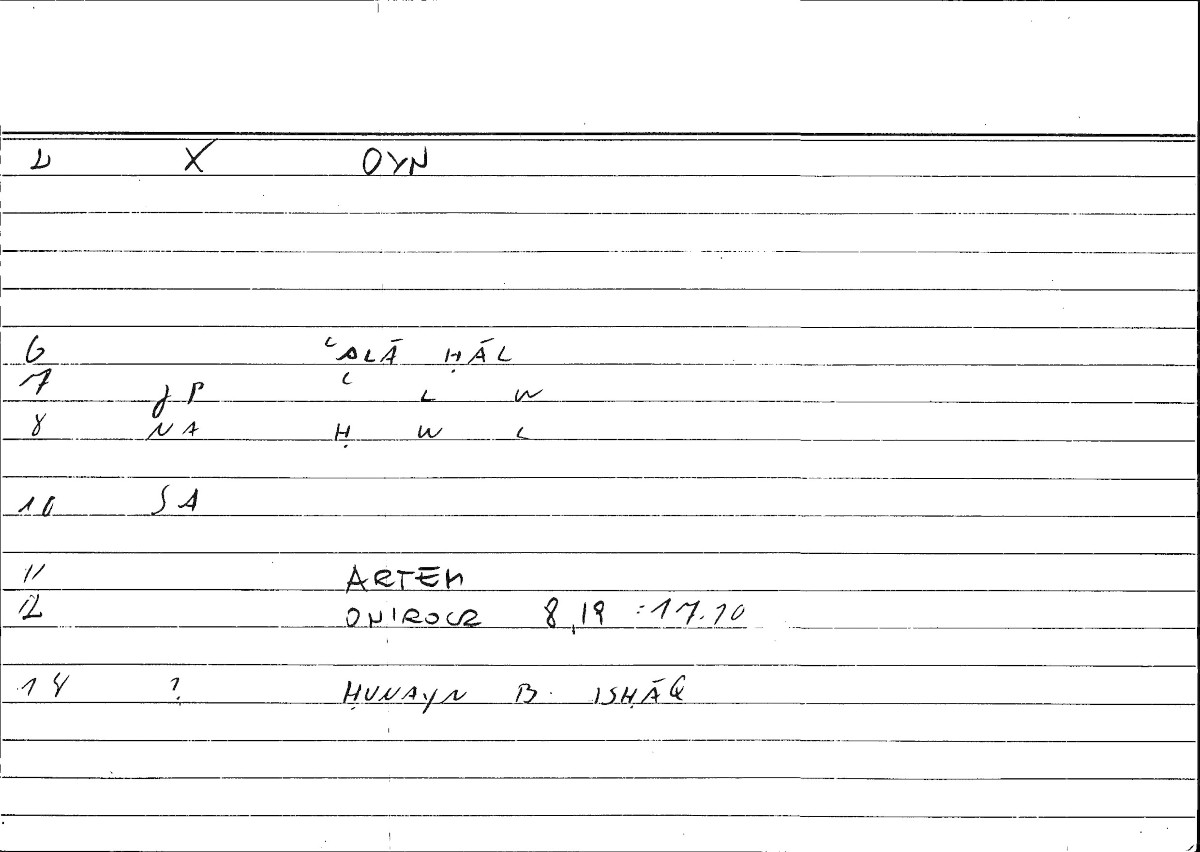 L X OYN
6 ʿALĀ ḤĀL
7 JP ʿ L W
8 NA Ḥ W L
10 SA
11 ARTEM
12 ONIROCR 8,19 :17.10
14 ? ḤUNAYN B. ISḤĀQ